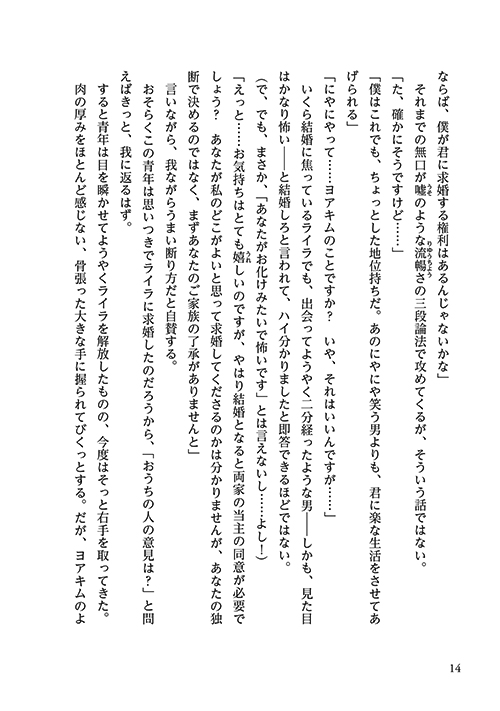 ならば、僕が君に求婚する権利はあるんじゃないかな」
　それまでの無口が嘘のような流暢さの三段論法で攻めてくるが、そういう話ではない。
「た、確かにそうですけど……」
「僕はこれでも、ちょっとした地位持ちだ。あのにやにや笑う男よりも、君に楽な生活をさせてあ
げられる」
「にやにやって……ヨアキムのことですか？　いや、それはいいんですが……」
　いくら結婚に焦っているライラでも、出会ってようやく二分経ったような男――しかも、見た目
はかなり怖い――と結婚しろと言われて、ハイ分かりましたと即答できるほどではない。
（で、でも、まさか、「あなたがお化けみたいで怖いです」とは言えないし……よし！）
「えっと……お気持ちはとても嬉しいのですが、やはり結婚となると両家の当主の同意が必要で
しょう？　あなたが私のどこがよいと思って求婚してくださるのかは分かりませんが、あなたの独
断で決めるのではなく、まずあなたのご家族の了承がありませんと」
　言いながら、我ながらうまい断り方だと自賛する。
　おそらくこの青年は思いつきでライラに求婚したのだろうから、「おうちの人の意見は？」と問
えばきっと、我に返るはず。
　すると青年は目を瞬かせてようやくライラを解放したものの、今度はそっと右手を取ってきた。
肉の厚みをほとんど感じない、骨張った大きな手に握られてびくっとする。だが、ヨアキムのよ
うそ
りゅうちょう
うれ
14